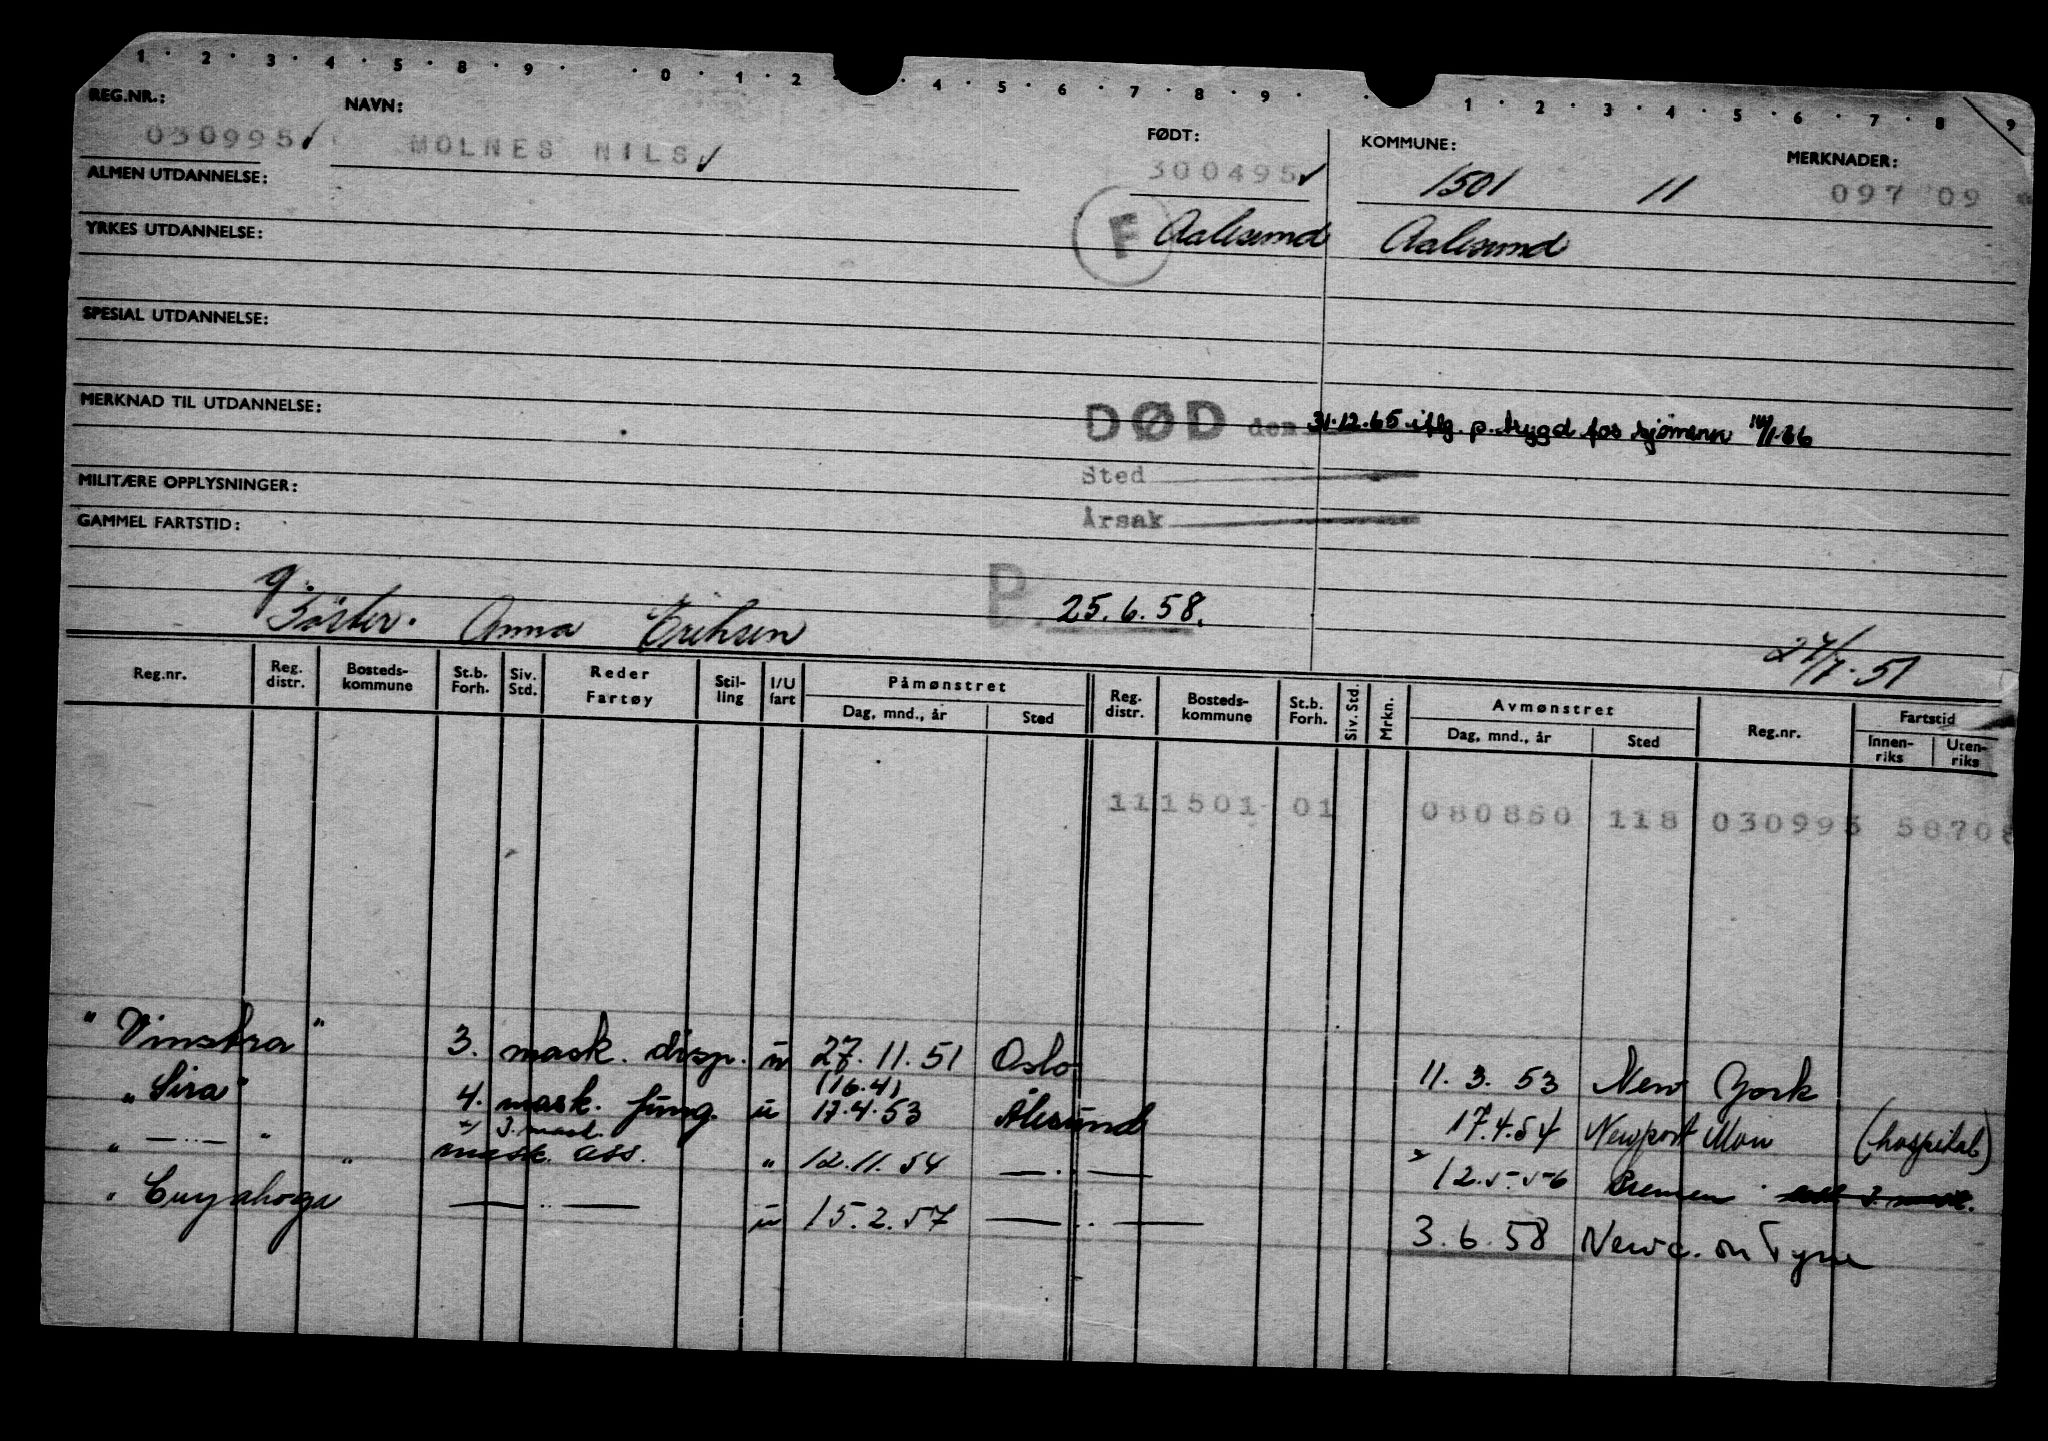 1 · 2 · 3 · 4 · 5 · 8 · 9 · · 0 · 1 · 2 · · 4 · 5 · 6 · 7 · 8 · 9 · · 1 · 2 · 3 · 4 · 5 · 6 · 7 · 8 · 9
REG.NR.: NAVN: FØDT: KOMMUNE: MERKNADER:
030995 ✓ MOLNES NILS ✓ 300495 ✓ 1501 11 097 09
ALMEN UTDANNELSE:
F Aalesund Aalesund
YRKES UTDANNELSE:
SPESIAL UTDANNELSE:
MERKNAD TIL UTDANNELSE:
DØD den 31.12.65 iflg. p. trygd for sjømenn 14/1-66
Sted
MILITÆRE OPPLYSNINGER:
Årsak
GAMMEL FARTSTID:
P. 25.6.58.
g. Søster. Anna Eriksen
24/7-51
Reg.nr. Reg. distr. Bosteds-kommune St.b. Forh. Siv. Std. Reder Fartøy Stil-ling I/U fart Påmønstret Dag, mnd., år Sted Reg. distr. Bosteds-kommune St.b. Forh. Siv. Std. Mrkn. Avmønstret Dag, mnd., år Sted Reg.nr. Fartstid Innen-riks Uten-riks
111501 01 080850 118 030995 58708
"Vinstra" 3. mask. disp. u 27.11.51 Oslo 11.3.53 New York
(16.4)
"Sira" 4. mask. fung. u 17.4.53 Ålesund 17.4.54 Newport Mon (hospital)
x/ 3. mask.
" — .. — " mask. ass. " 12.11.54 — .. — x 12.5.56 Bremen
" Cuyahoga " — .. — u 15.2.57 — .. — 3.6.58 Newc. on Tyne